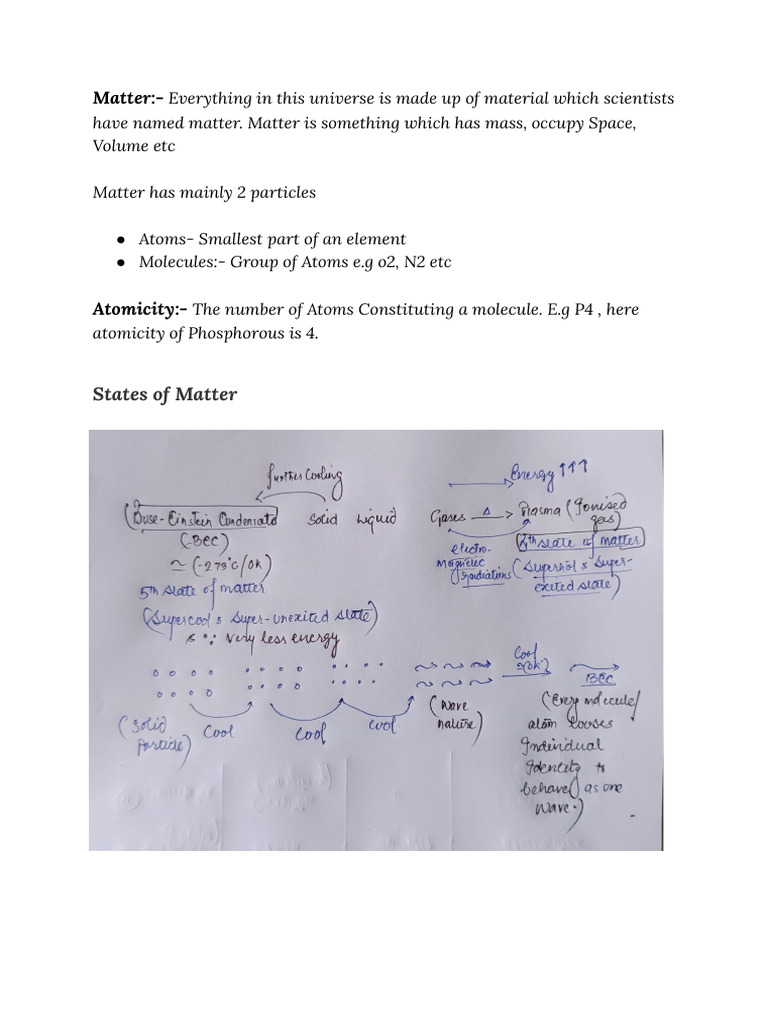 Matter:- Everything in this universe is made up of material which scientists
have named matter. Matter is something which has mass, occupy Space,
Volume etc
Matter has mainly 2 particles
● Atoms- Smallest part of an element
● Molecules:- Group of Atoms e.g o2, N2 etc
Atomicity:- The number of Atoms Constituting a molecule. E.g P4 , here
atomicity of Phosphorous is 4.
States of Matter
further Cooling
Energy ↑↑↑
(Bose-Einstein Condensate Solid Liquid Gases Δ→ Plasma (Ionised
gas)
(BEC)
≃ (-273°C/0K)
5th state of matter
(Supercool & Super-unexited state)
& ∵ Very less energy
electro-
magnetic
radiations
4th state of matter
(Superhot & Super-
exited state)
Cool
≃(0K)
BEC
(Solid
Particle)
Cool
Cool
Cool
(Wave
nature)
(Every molecule/
atom looses
Individual
Identity &
behave as one
wave.)